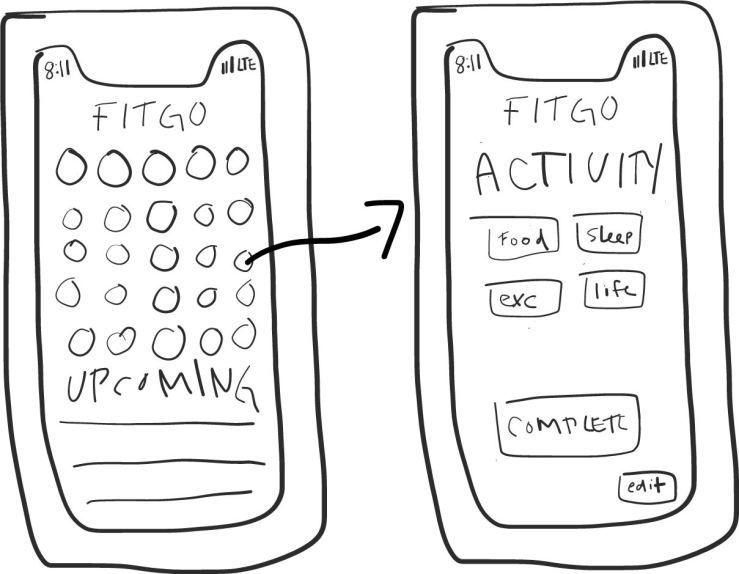 8:11 LTE
FITGO
UPCOMING
8:11 LTE
FITGO
ACTIVITY
Food sleep
exc life
COMPLETE
edit